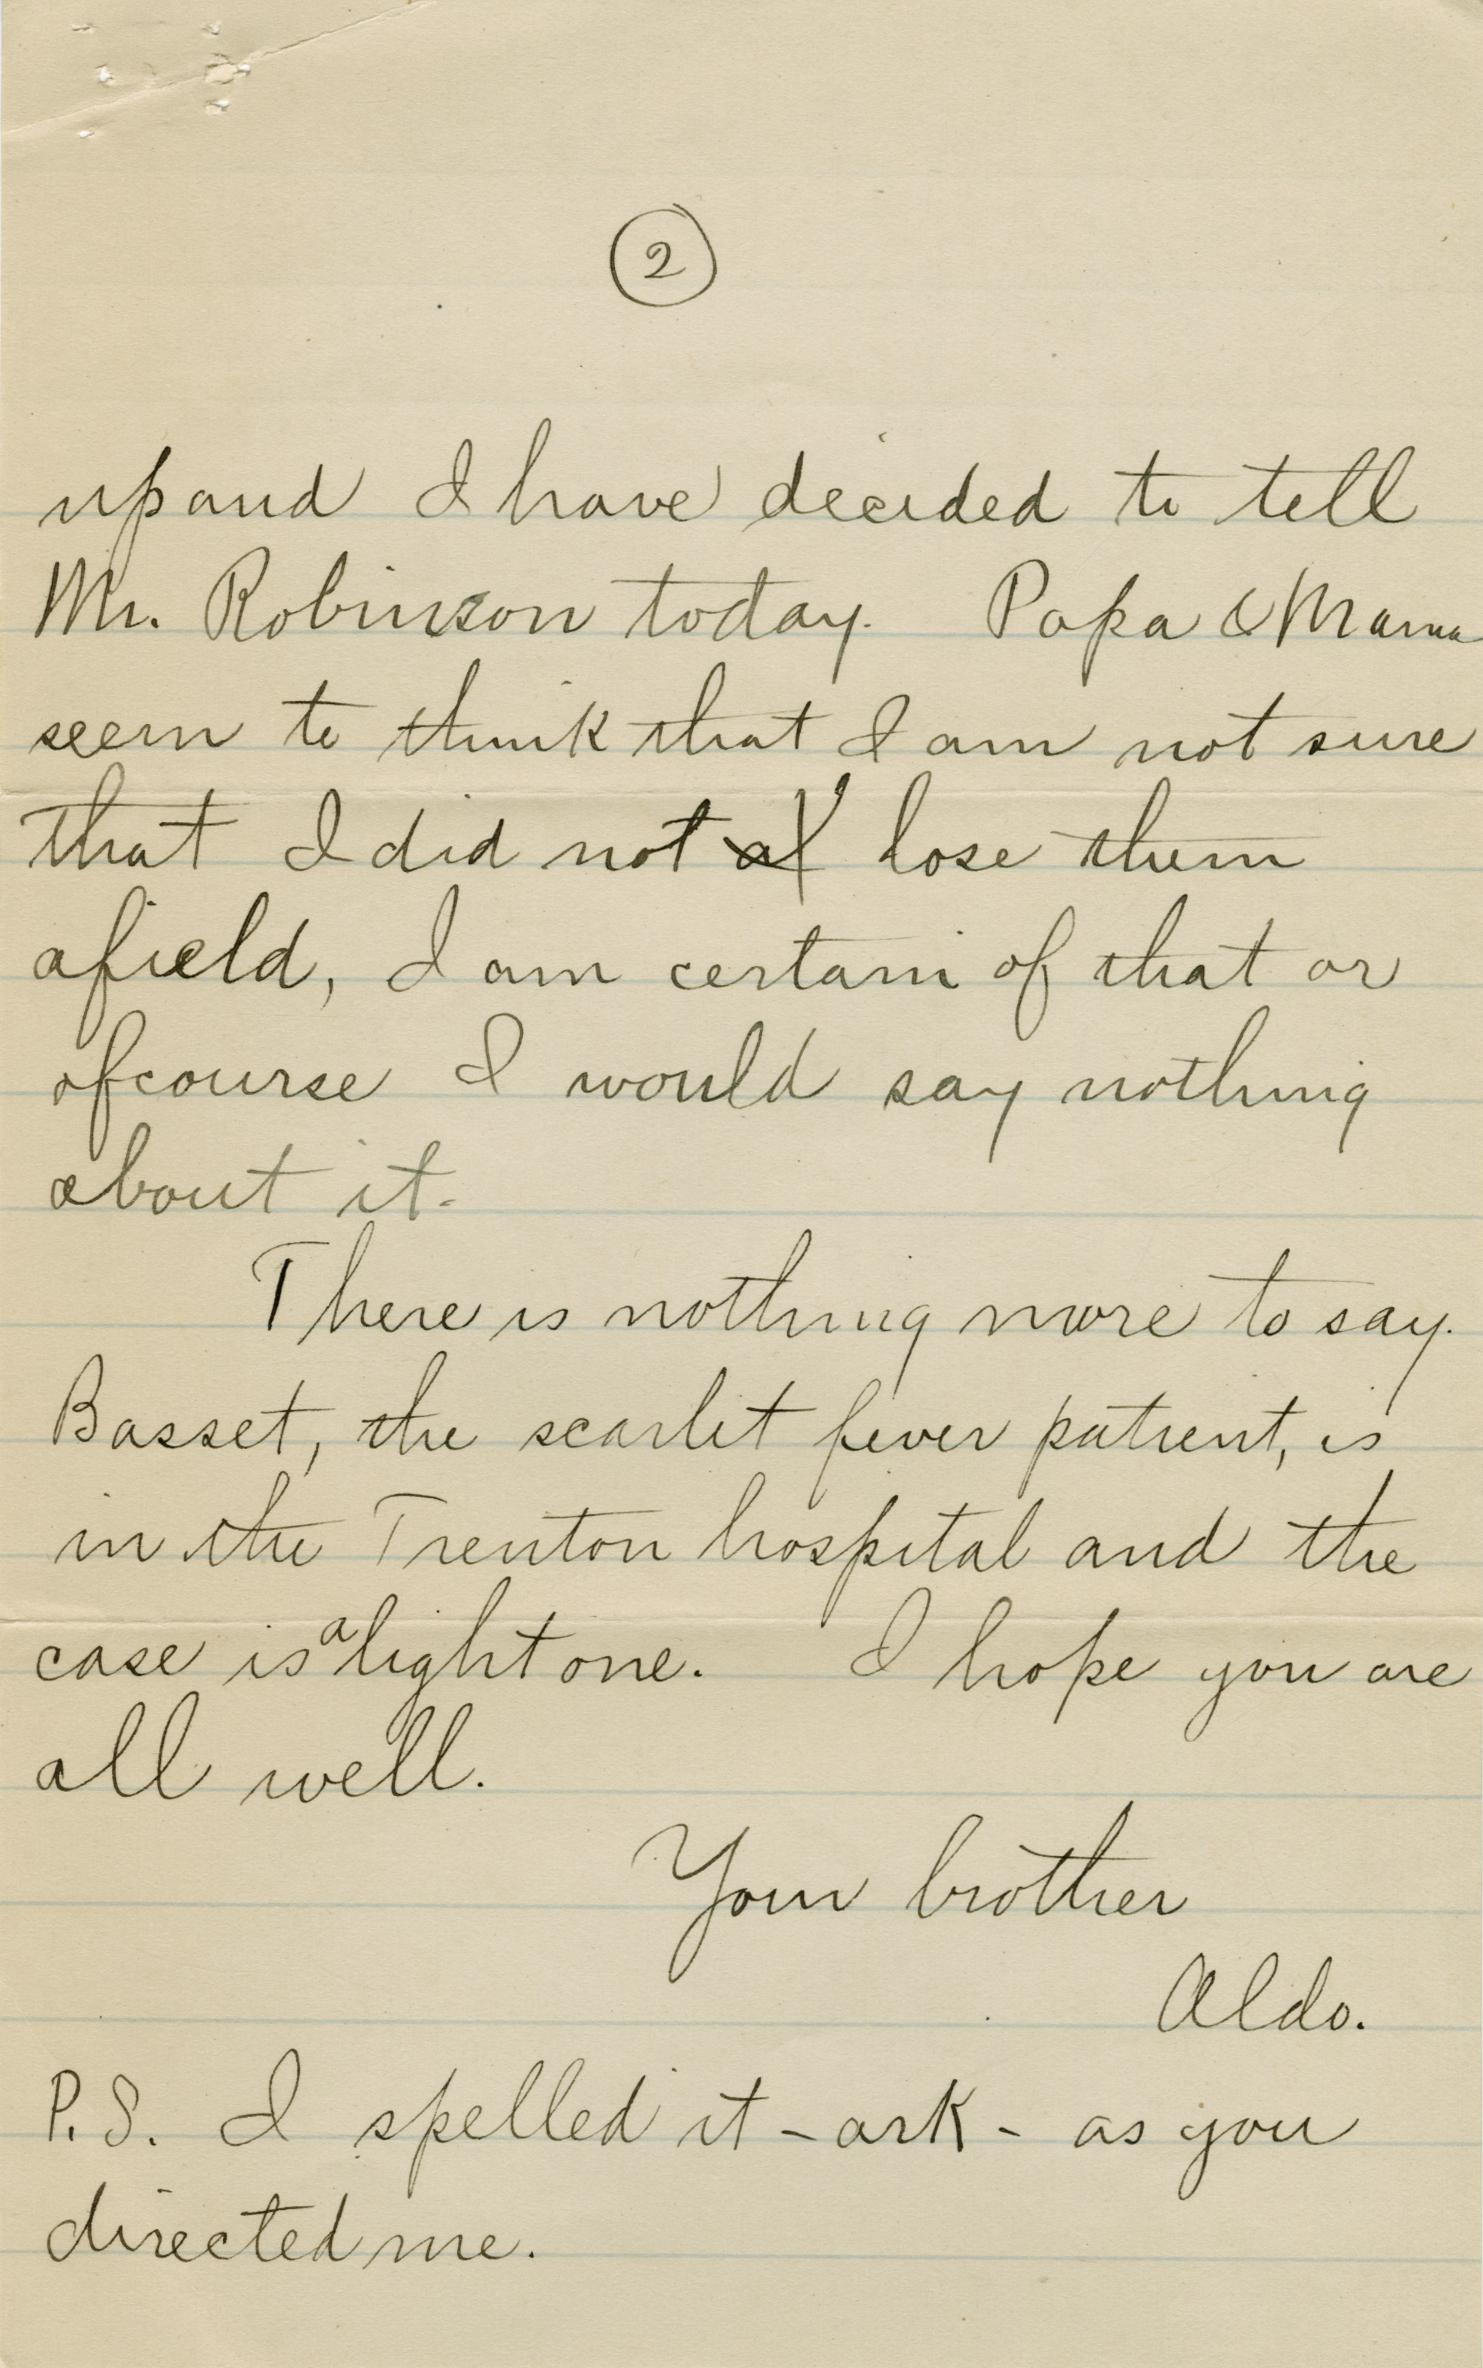 2
up and I have decided to tell
Mr. Robinson today. Papa & Mama
seem to think that I am not sure
that I did not lose them
afield, I am certain of that or
ofcourse I would say nothing
about it.
There is nothing more to say.
Basset, the scarlet fever patient, is
in the Trenton hospital and the
case is a light one. I hope you are
all well.
Your brother
Aldo.
P.S. I spelled it - ark - as you
directed me.